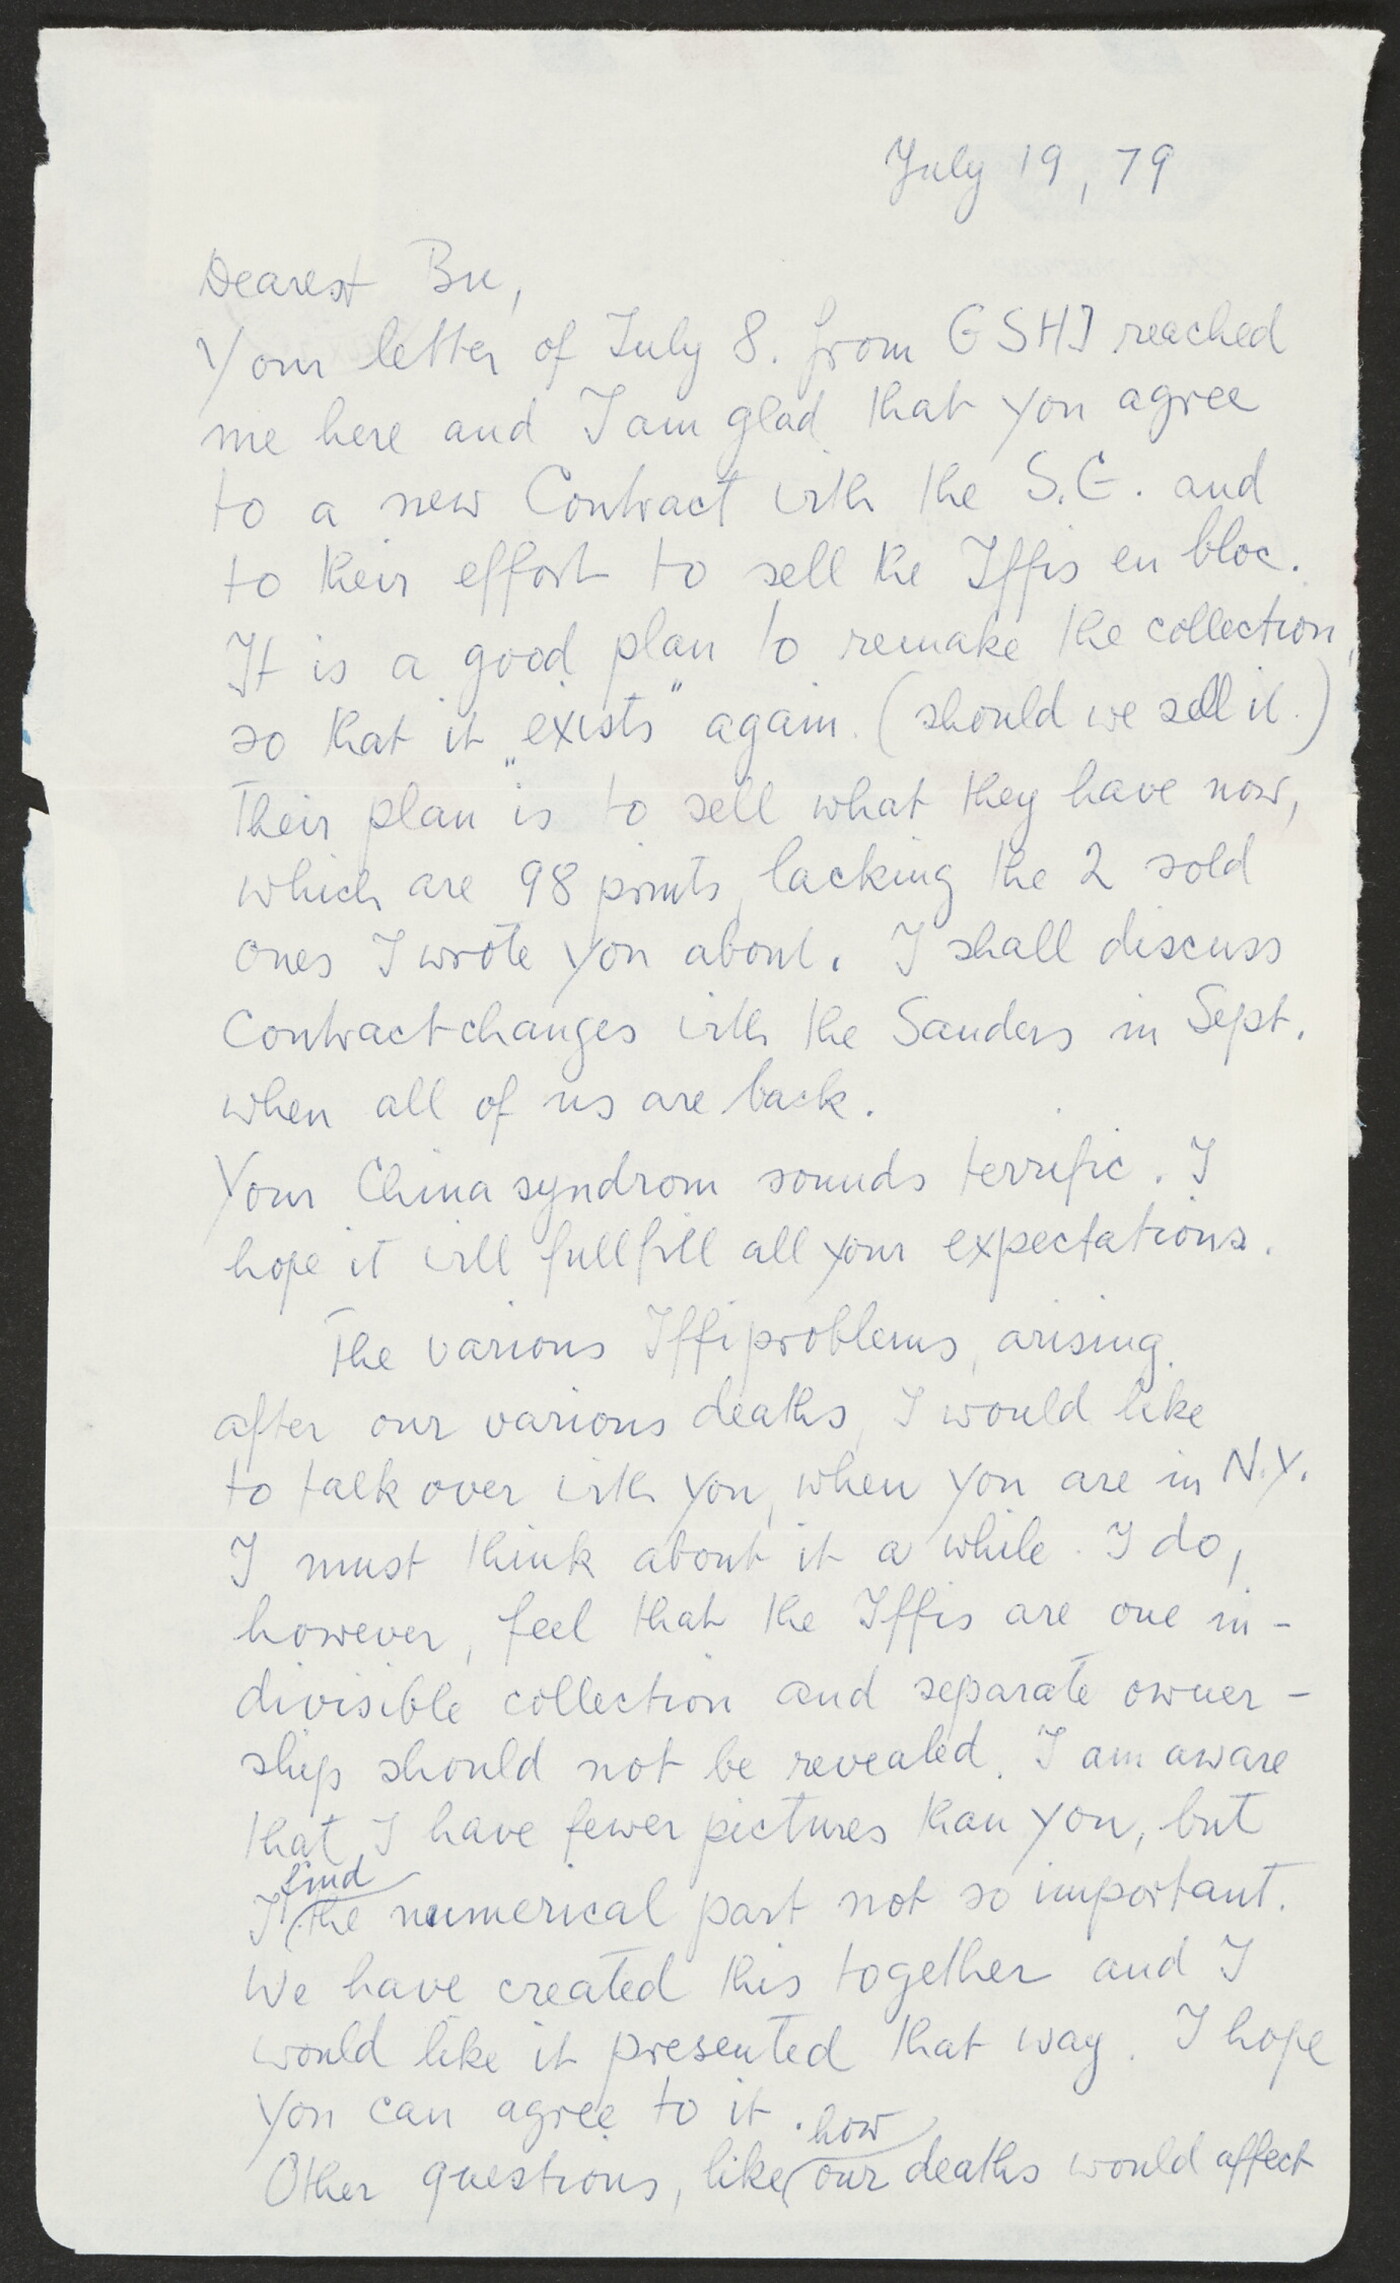 July 19, 79
Dearest Bu,
Your letter of July 8. from GSHJ reached
me here and I am glad that you agree
to a new Contract with the S.G. and
to their effort to sell the Iffis en bloc.
It is a good plan to remake the collection,
so that it „exists" again. (should we sell it.)
Their plan is to sell what they have now,
which are 98 prints, lacking the 2 sold
ones I wrote you about. I shall discuss
Contractchanges with the Sanders in Sept.
when all of us are back.
Your China syndrom sounds terrific. I
hope it will fullfill all your expectations.
The various Iffiproblems, arising
after our various deaths, I would like
to talk over with you, when you are in N.Y.
I must think about it a while. I do,
however, feel that the Iffis are one in-
divisible collection and separate owner-
ship should not be revealed. I am aware
that I have fewer pictures than you, but
I find the numerical part not so important.
We have created this together and I
would like it presented that way. I hope
you can agree to it.
Other questions, like how our deaths would affect